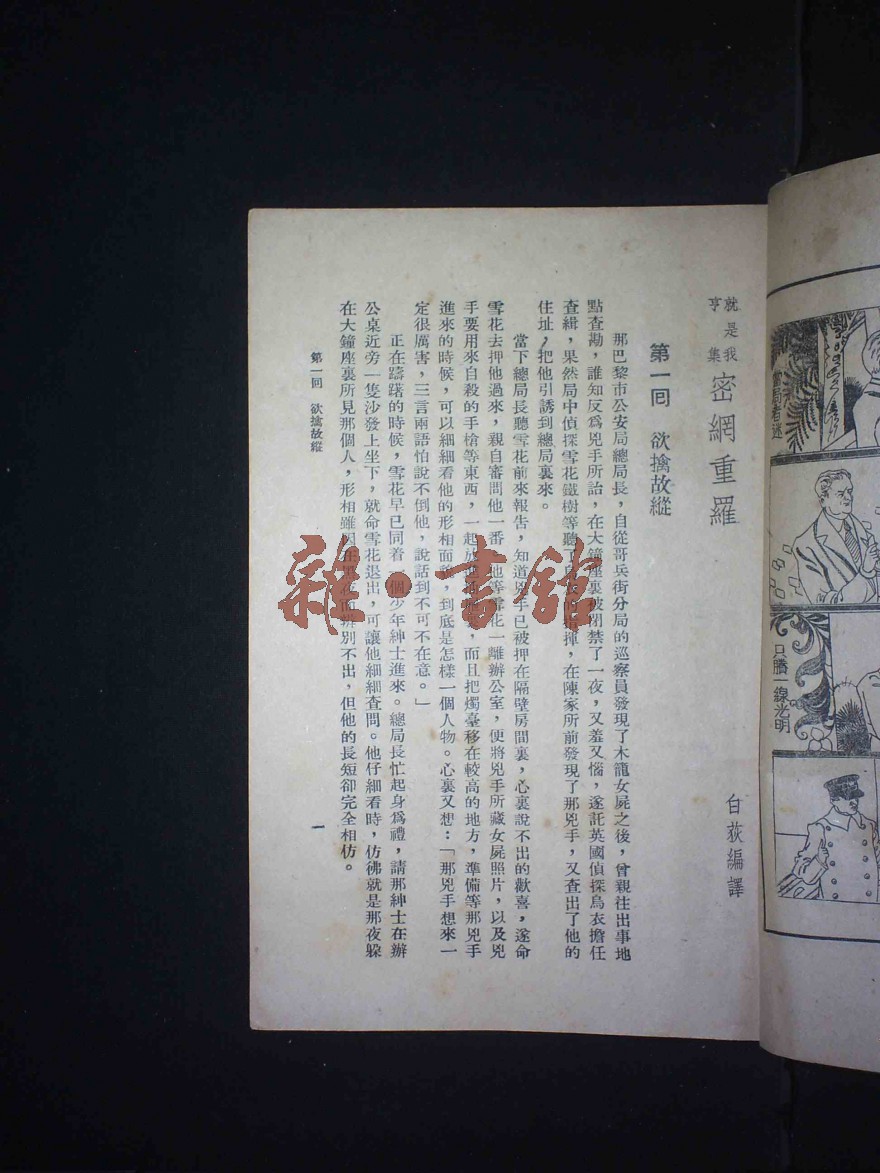 就是我
亨集
密網重羅
白荻編譯
第一囘 欲擒故縱
那巴黎市公安局總局長，自從哥兵街分局的巡察員發現了木籠女屍之後，曾親往出事地
點查勘，誰知反爲兇手所詒，在大鐘座裏被閉禁了一夜，又羞又惱，遂託英國偵探烏衣擔任
查緝，果然局中偵探雪花鐵樹等聽了烏衣的指揮，在陳家所前發現了那兇手，又查出了他的
住址，把他引誘到總局裏來。
當下總局長聽雪花前來報告，知道兇手已被押在隔壁房間裏，心裏說不出的歡喜，遂命
雪花去押他過來，親自審問他一番。他等雪花一離辦公室，便將兇手所藏女屍照片，以及兇
手要用來自殺的手槍等東西，一起放進，而且把燭臺移在較高的地方，準備等那兇手
進來的時候，可以細細看他的形相面貌，到底是怎樣一個人物。心裏又想：「那兇手想來一
定很厲害，三言兩語怕說不倒他，說話到不可不在意。」
正在躊躇的時候，雪花早已同着一個少年紳士進來。總局長忙起身爲禮，請那紳士在辦
公桌近旁一隻沙發上坐下，就命雪花退出，可讓他細細查問。他仔細看時，仿彿就是那夜躲
在大鐘座裏所見那個人，形相雖因在黑夜而辨別不出，但他的長短卻完全相仿。
第一囘 欲擒故縱
一
雜·書館
當局者迷
只賸一線光明